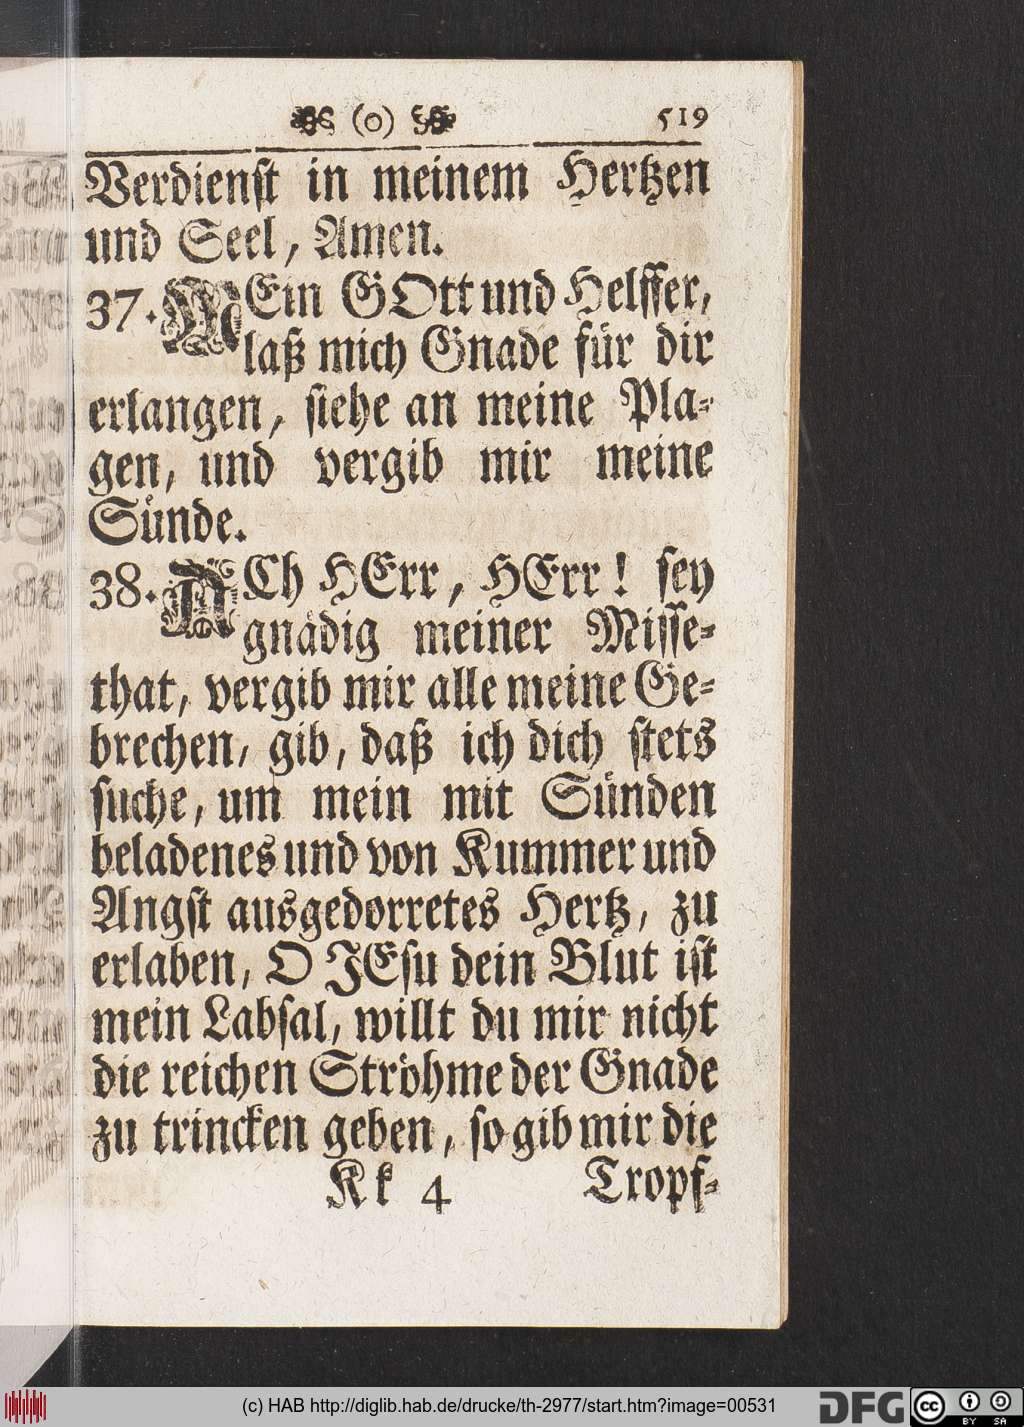 (o) 519
Verdienst in meinem Hertzen
und Seel, Amen.
37. MEin GOtt und Helffer,
laß mich Gnade für dir
erlangen, siehe an meine Pla-
gen, und vergib mir meine
Sünde.
38. ACh HErr, HErr! sey
gnädig meiner Misse-
that, vergib mir alle meine Ge-
brechen, gib, daß ich dich stets
suche, um mein mit Sünden
beladenes und von Kummer und
Angst ausgedorretes Hertz, zu
erlaben, O JEsu dein Blut ist
mein Labsal, willt du mir nicht
die reichen Ströhme der Gnade
zu trincken geben, so gib mir die
Kk 4 Tropf-
(c) HAB http://diglib.hab.de/drucke/th-2977/start.htm?image=00531
DFG cc BY SA